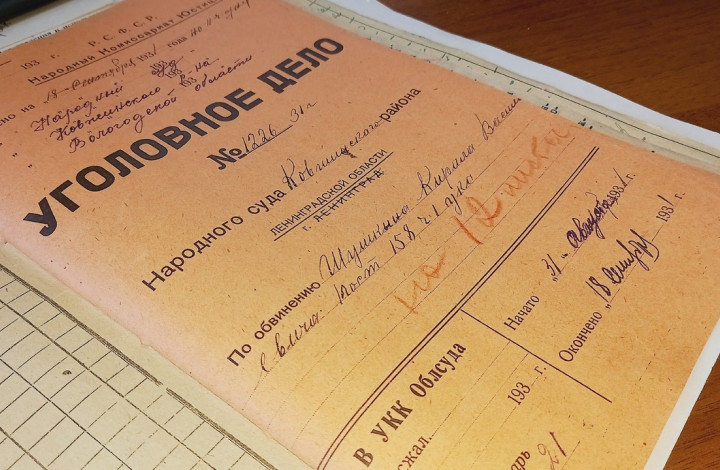 Р. С. Ф. С. Р.
193 г.
Народный Комиссариат Юстиции
но на 18 сентября 1931 года на
" Народный суд 193
" Ковжинского р-на 193
" Вологодской области
УГОЛОВНОЕ ДЕЛО
№ 1226 31 г.
Народного суда Ковжинского района
ЛЕНИНГРАДСКОЙ ОБЛАСТИ
г. ЛЕНИНГРАД
По обвинению Шушкина Кирила Васили
евича по ст 158 ч 1 УКО
на 12
Начато „31" августа 1931 г.
Окончено „18 1931 г.
В УКК Облсуда
193 г.
21